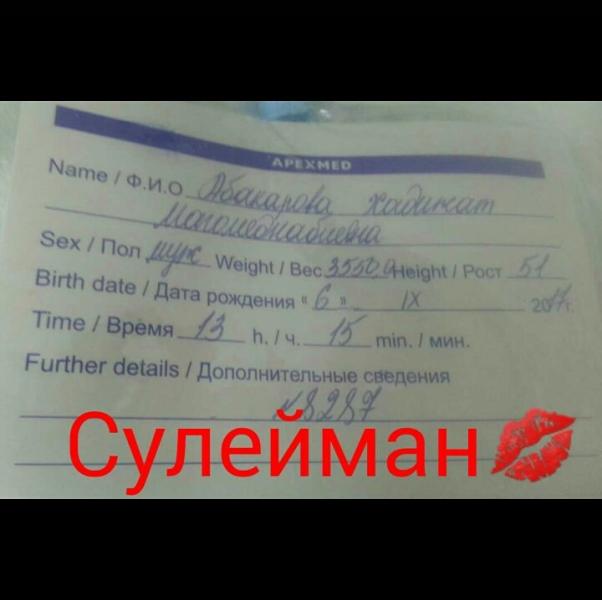 APEXMED
Name / Ф.И.О Абакарова Хадижат
Магомеднабиевна
Sex / Пол муж Weight / Вес 3550,0 Height / Рост 51
Birth date / Дата рождения « 6 » IX 2017г.
Time / Время 13 h. / ч. 15 min. / мин.
Further details / Дополнительные сведения
№8287
Сулейман